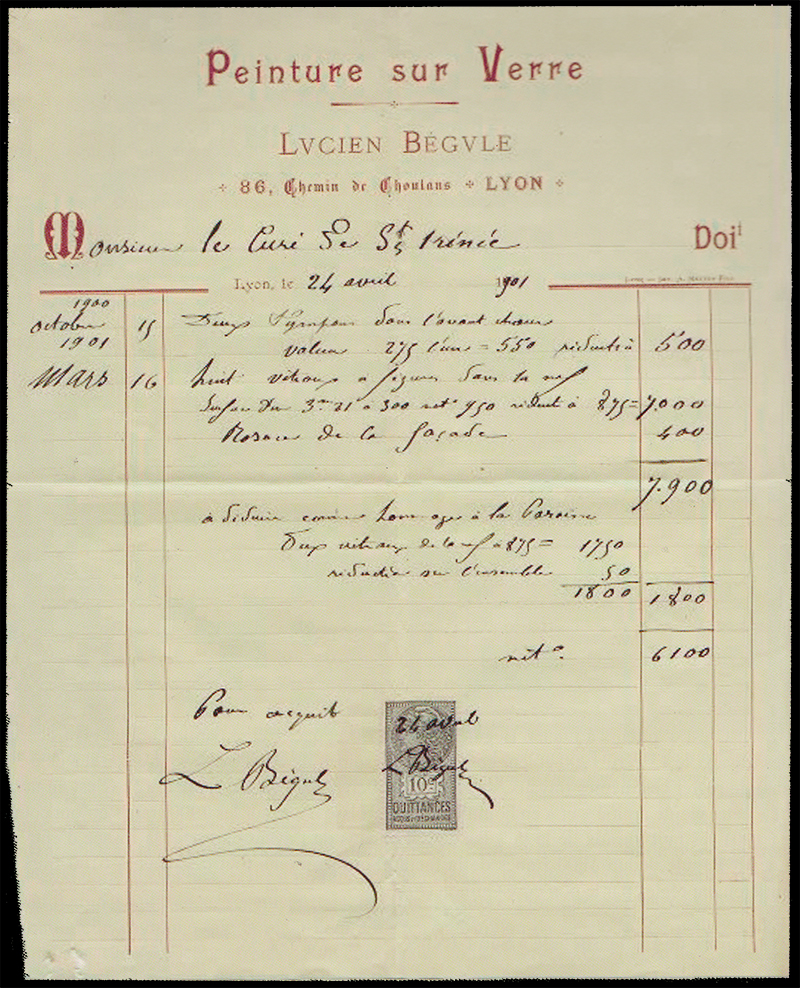 Peinture sur Verre
LVCIEN BÉGVLE
86, Chemin de Choulans LYON
Monsieur le Curé de St Irénée Doit
Lyon, le 24 avril 1901
1900
octobre 15 Deux Tympans dans l'avant chœur
1901
valeur 275 l'un = 550 réduits à 500
Mars 16 huit vitraux à figures dans la nef
Surface de 3 m 21 à 300 net 950 réduit à 875 = 7.000
Rosace de la façade 400
7.900
à déduire comme hommage à la Paroisse
Deux vitraux de la nef à 875 = 1750
réduction sur l'ensemble 50
1800 1800
net 6100
Pour acquit 24 avril
L Bégule L Bégule
10c
QUITTANCES
REÇUS ET DÉCHARGES